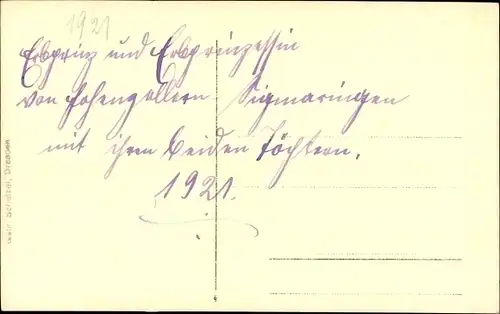 1921
Erbprinz und Erbprinzessin
von Hohenzollern Sigmaringen
mit ihren beiden Töchtern.
1921.
Dresden